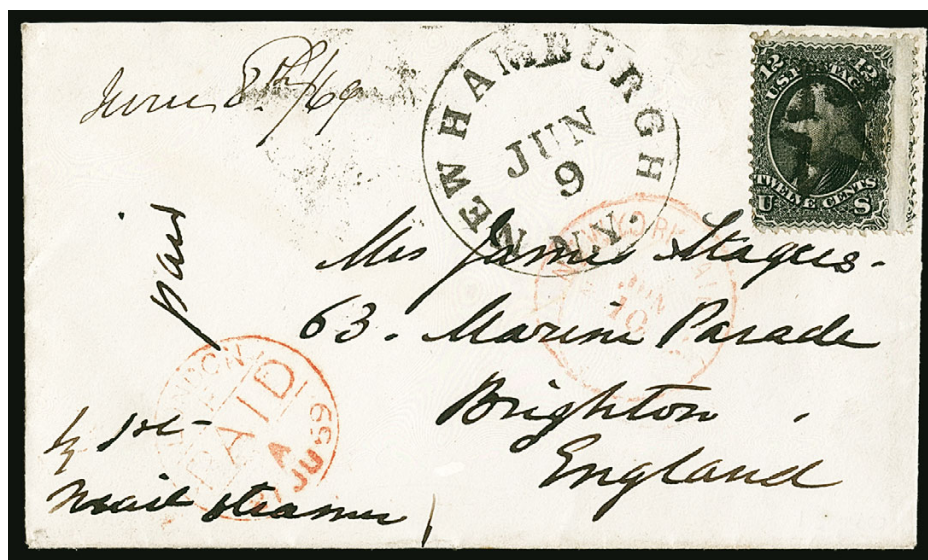 June 8th/69
NEW HAMBURGH N.Y.
JUN
9
12 12
U.S. POSTAGE
TWELVE CENTS
U S
Mrs James
63. Marine Parade
Brighton
England
paid
NEW YORK PAID
JUN
10
LONDON
PAID
A
JU 69
by 1st
Mail steamer